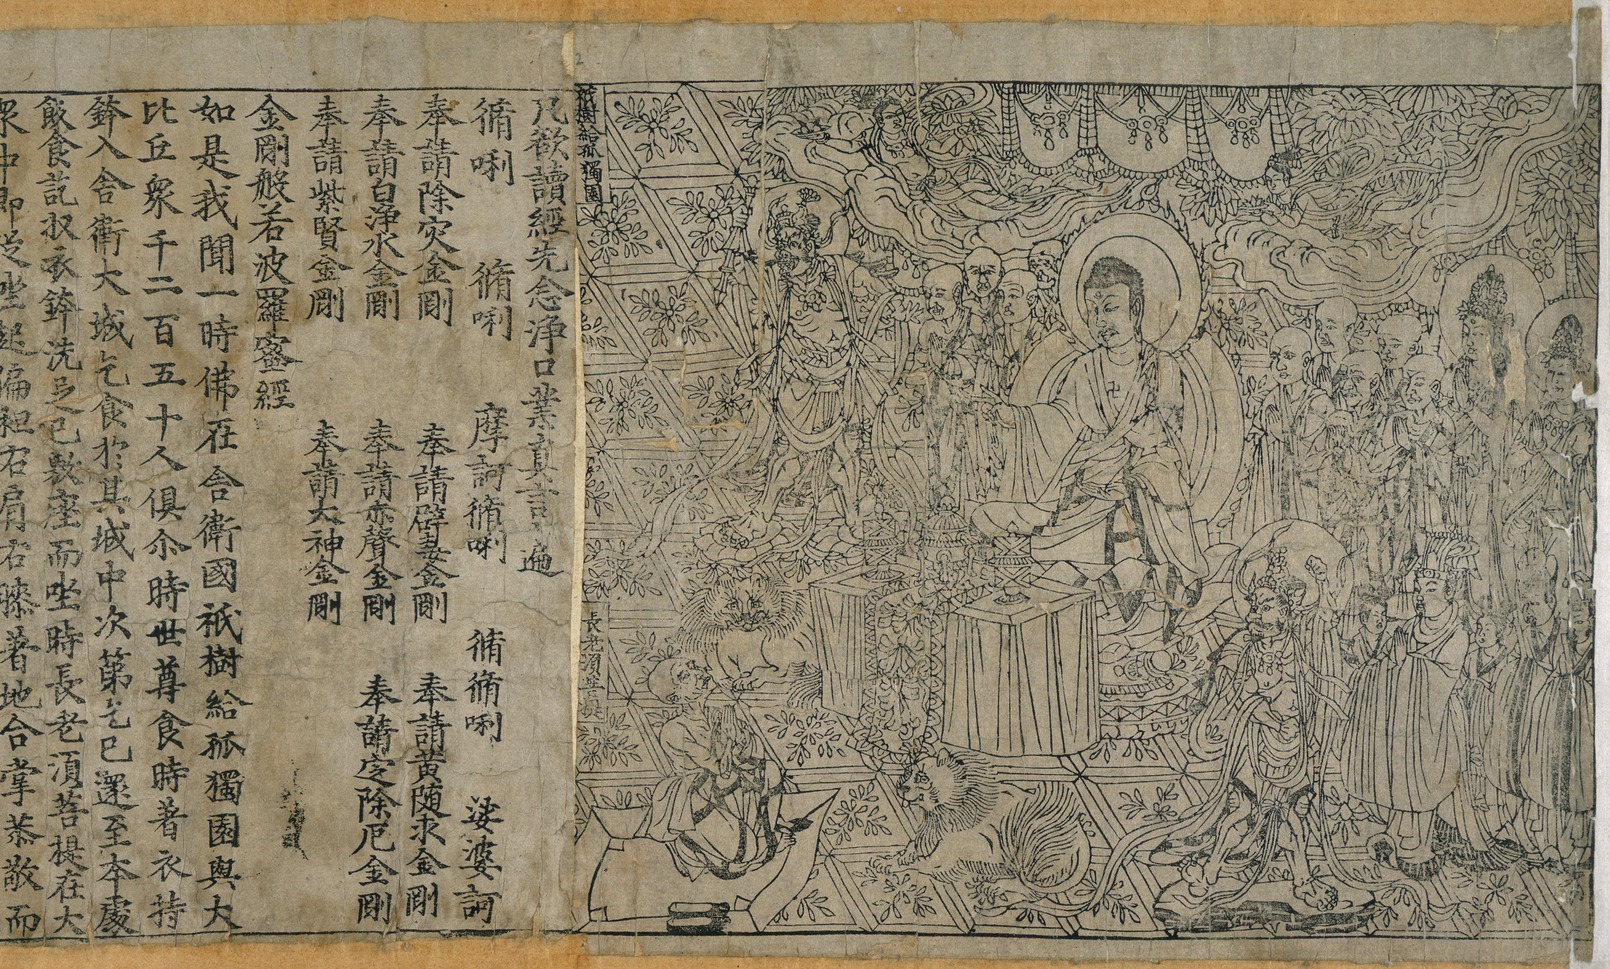 祇樹給孤獨園
長老須菩提
凡欲讀經先念淨口業真言一遍
脩唎 脩唎 摩訶脩唎 脩脩唎 娑婆訶
奉請除灾金剛 奉請辟毒金剛 奉請黄随求金剛
奉請白淨水金剛 奉請赤聲金剛 奉請定除厄金剛
奉請紫賢金剛 奉請大神金剛
金剛般若波羅蜜經
如是我聞一時佛在舍衛國祇樹給孤獨園與大
比丘衆千二百五十人俱尒時世尊食時著衣持
鉢入舍衛大城乞食於其城中次第乞已還至本處
飯食訖收衣鉢洗足已敷座而坐時長老須菩提在大
衆中即從坐起偏袒右肩右膝著地合掌恭敬而